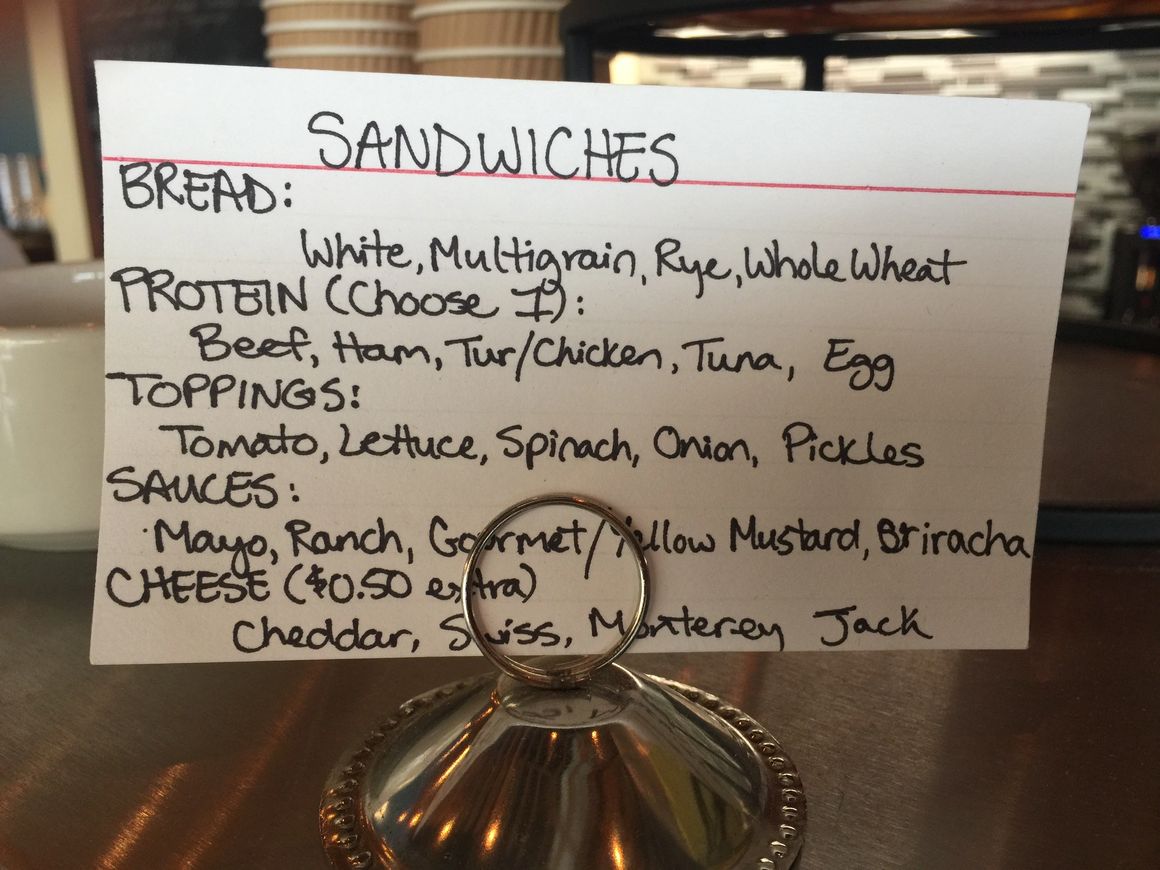 SANDWICHES
BREAD:
White, Multigrain, Rye, Whole Wheat
PROTEIN (Choose 1):
Beef, Ham, Tur/Chicken, Tuna, Egg
TOPPINGS:
Tomato, Lettuce, Spinach, Onion, Pickles
SAUCES:
Mayo, Ranch, Gourmet/Yellow Mustard, Sriracha
CHEESE ($0.50 extra)
Cheddar, Swiss, Monterey Jack